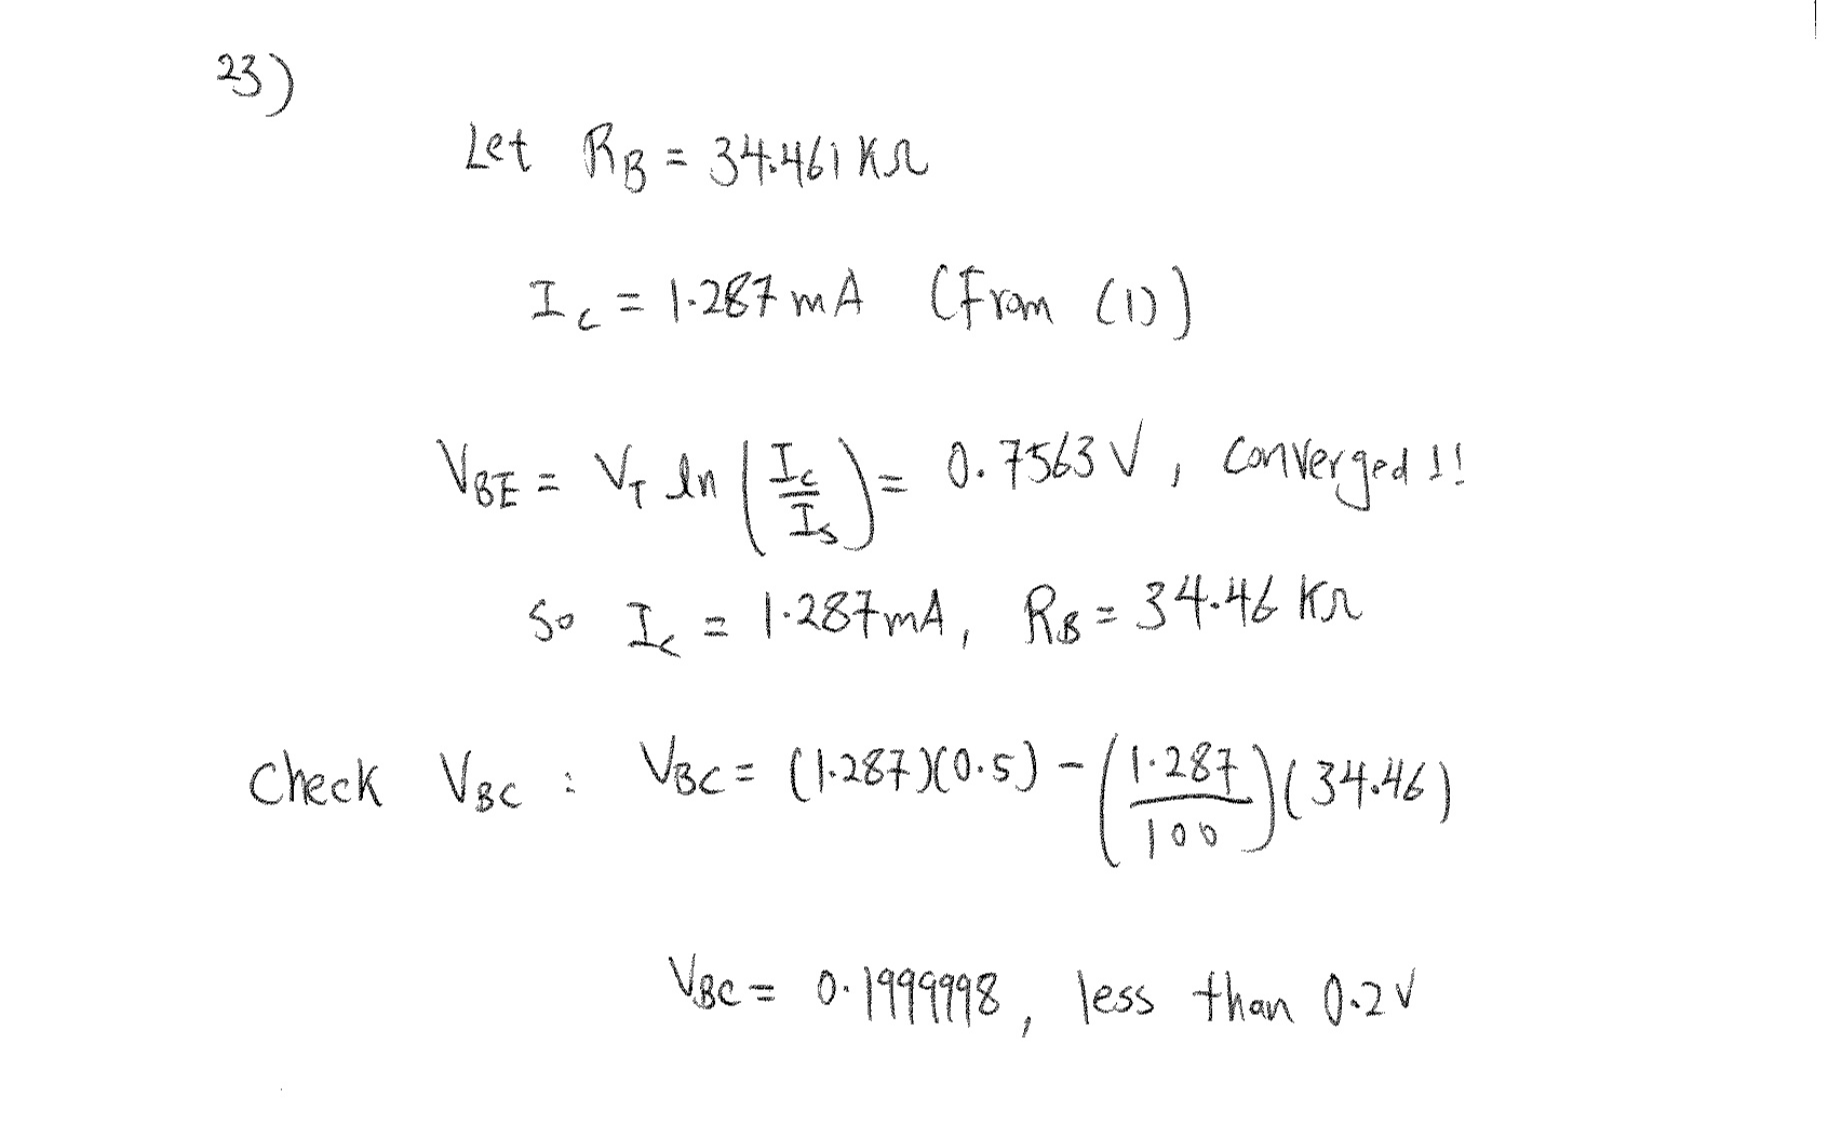 23)
Let R_B = 34.461 KΩ
I_C = 1.287 mA (From (1))
V_BE = V_T ln (I_C / I_S) = 0.7563 V, Converged !!
So I_C = 1.287mA, R_B = 34.46 KΩ
Check V_BC : V_BC = (1.287)(0.5) - (1.287 / 100)(34.46)
V_BC = 0.1999998, less than 0.2V